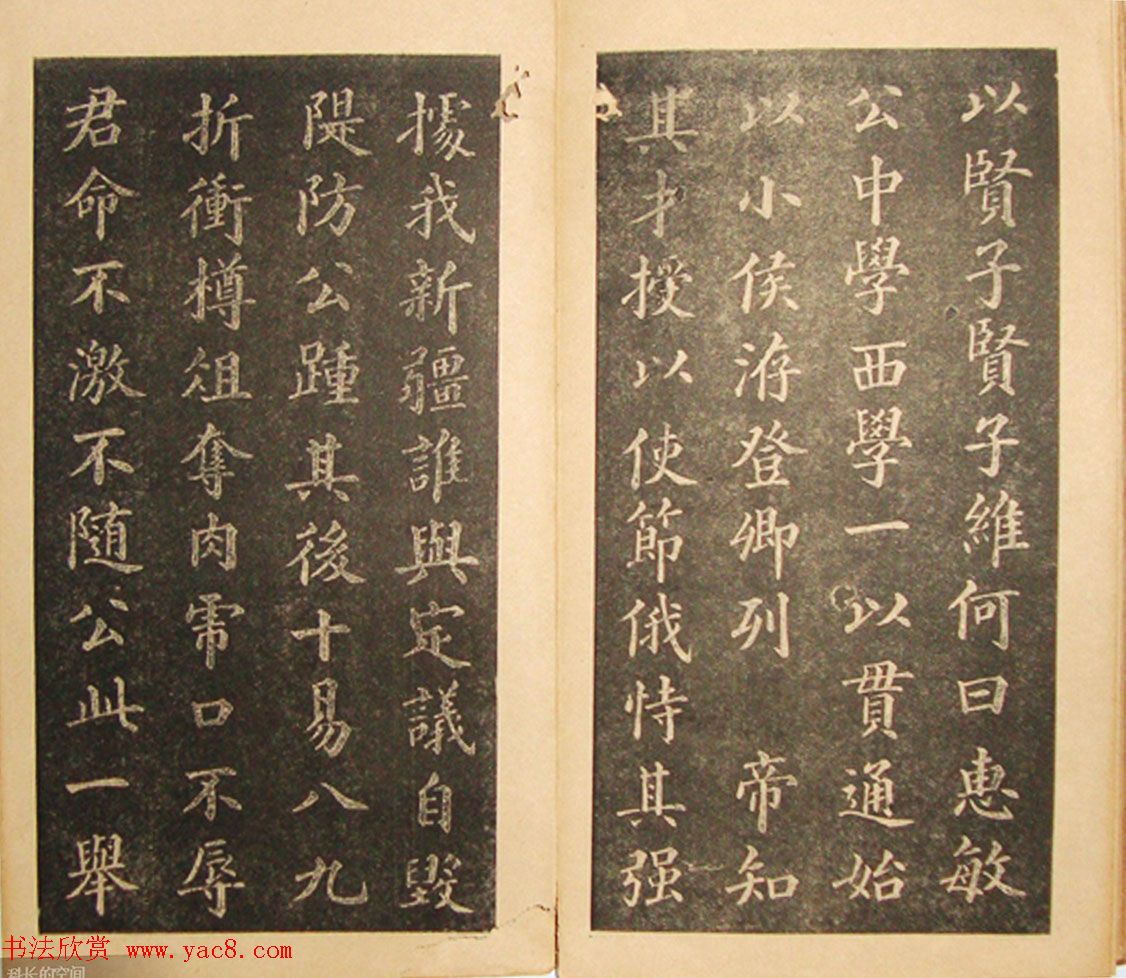 以賢子賢子維何曰惠敏
公中學西學一以貫通始
以小侯洊登卿列 帝知
其才授以使節俄恃其强
據我新疆誰與定議自毀
隄防公踵其後十易八九
折衝樽俎奪肉虎口不辱
君命不激不随公此一舉
书法欣赏 www.yac8.com
科长的空间